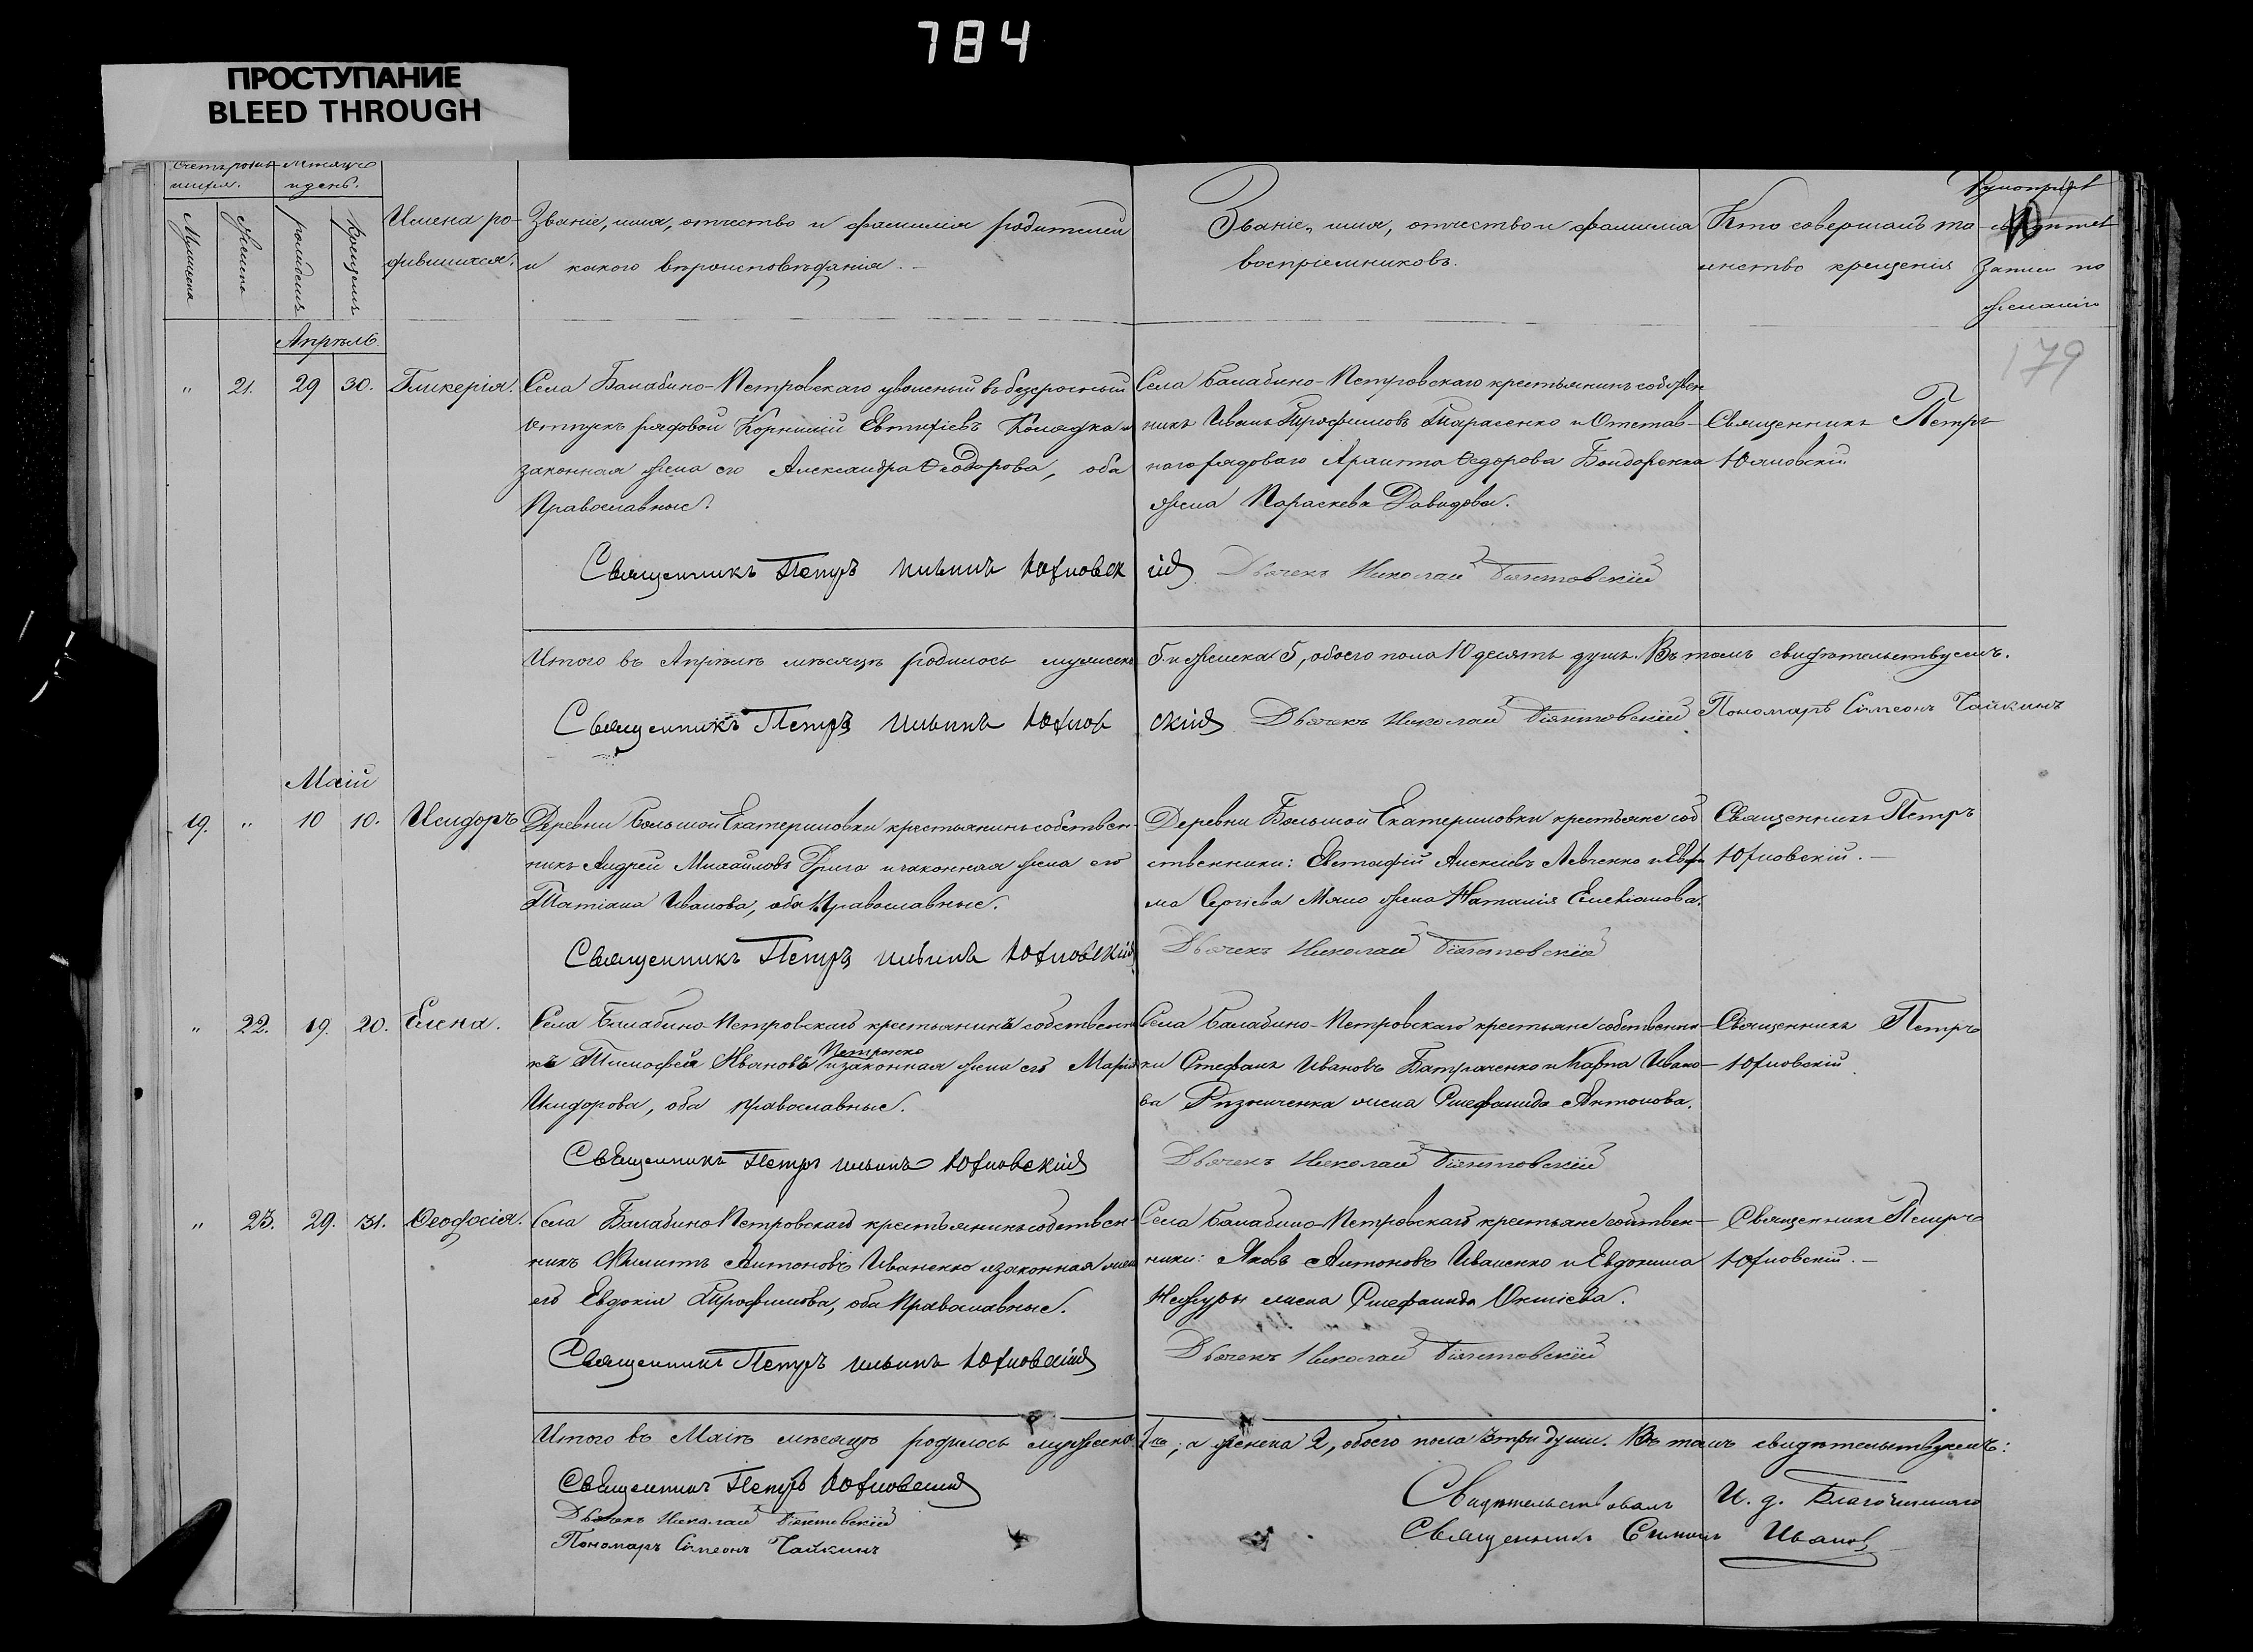 784
ПРОСТУПАНИЕ
BLEED THROUGH
Счетъ родив- Мѣсяцъ
шихся. и день.
Мужеска Женска рожденія Крещенія
Имена ро-
дившихся.
Званіе, имя, отчество и фамилія родителей
и какого вѣроисповѣданія.
Званіе, имя, отчество и фамилія
воспріемниковъ.
Кто совершалъ та-
инство крещенія
записи по
желанію
179
Апрѣль.
" 21. 29 30. Гликерія.
Села Балабино-Петровскаго уволенный въ безсрочный
отпускъ рядовой Корнилій Евтихіевъ Колядка и
законная жена его Александра Ѳеодорова, оба
Православные.
Села Балабино-Петровскаго крестьянинъ собствен
никъ Иванъ Трофимовъ Тарасенко и Отстав-
наго рядоваго Ѳедорова Бондаренка
жена Параскева Давидова.
Священникъ Петръ
Юхновскій
Священникъ Петръ Ильинъ Юхновскій Дьячекъ Николай
Итого въ Апрѣлѣ мѣсяцѣ родилось мужеска 5 и женска 5, обоего пола 10 десять душъ. Въ томъ свидѣтельствуемъ.
Священникъ Петръ Ильинъ Юхновскій Дьячекъ Николай Пономарь Симеонъ Чайкинъ
Маій
19. " 10 10. Исидоръ
Деревни Большой Екатериновки крестьянинъ собствен-
никъ Андрей Михайловъ Грига и законная жена его
Татіана Иванова, оба Православные.
Деревни Большой Екатериновки крестьяне соб
ственники: Евстафій Алексіевъ Левченко и
ма Сергіева жена Наталія
Священникъ Петръ
Юхновскій.
Священникъ Петръ Ильинъ Юхновскій Дьячекъ Николай
" 22. 19. 20. Елена.
Села Балабино-Петровскаго крестьянинъ собственни
къ Тимофей Ивановъ Петренко и законная жена его Марія
Исидорова, оба православные.
Села Балабино-Петровскаго крестьяне собственни-
ки Стефанъ Ивановъ Батраченко и Карпа Ивано-
ва Рязниченка жена Стефанида Антонова.
Священникъ Петръ
Юхновскій
Священникъ Петръ Ильинъ Юхновскій Дьячекъ Николай
" 23. 29. 31. Ѳеодосія.
Села Балабино Петровскаго крестьянинъ собствен-
никъ Антоновъ Иваненко и законная жена
его Евдокія Трофимова, оба Православные.
Села Балабино-Петровскаго крестьяне собствен-
ники: Яковъ Антоновъ Иваненко и Евдокима
жена Стефанида
Священникъ Петръ
Юхновскій.
Священникъ Петръ Ильинъ Юхновскій Дьячекъ Николай
Итого въ Маіѣ мѣсяцѣ родилось мужеска 1нъ, а женска 2, обоего пола 3 три души. Въ томъ свидѣтельствуемъ:
Священникъ Петръ Юхновскій
Дьячекъ Николай
Пономарь Симеонъ Чайкинъ
Свидѣтельствовалъ И. д. Благочиннаго
Священникъ Симеонъ Ивановъ